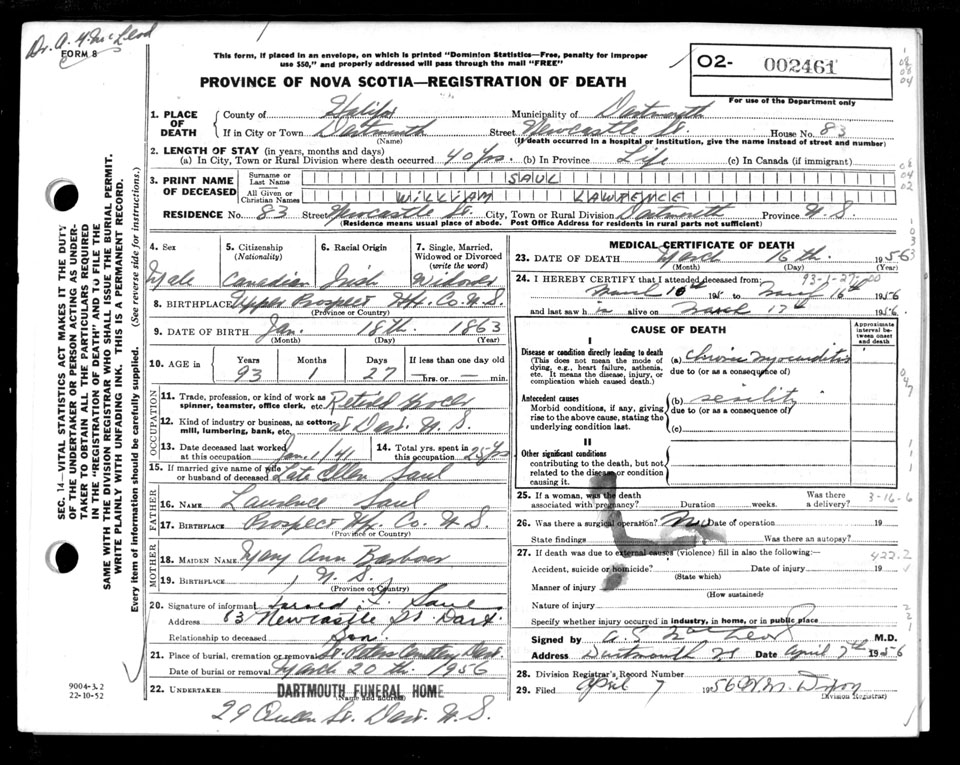 Dr. A. G. McLeod
FORM 8
This form, if placed in an envelope, on which is printed "Dominion Statistics—Free, penalty for improper
use $50," and properly addressed will pass through the mail "FREE"
PROVINCE OF NOVA SCOTIA—REGISTRATION OF DEATH
O2- 002461
For use of the Department only
SEC. 14—VITAL STATISTICS ACT MAKES IT THE DUTY
OF THE UNDERTAKER OR PERSON ACTING AS UNDER-
TAKER TO OBTAIN ALL THE PARTICULARS REQUIRED
IN THE "REGISTRATION OF DEATH" AND TO FILE THE
SAME WITH THE DIVISION REGISTRAR WHO SHALL ISSUE THE BURIAL PERMIT.
WRITE PLAINLY WITH UNFADING INK. THIS IS A PERMANENT RECORD.
Every item of information should be carefully supplied. (See reverse side for instructions.)
1. PLACE OF DEATH
County of Halifax Municipality of Dartmouth
If in City or Town Dartmouth Street Newcastle St. House No. 83
(Name) (If death occurred in a hospital or institution, give the name instead of street and number)
2. LENGTH OF STAY (in years, months and days)
(a) In City, Town or Rural Division where death occurred 40 yrs. (b) In Province Life (c) In Canada (if immigrant)
3. PRINT NAME OF DECEASED
Surname or Last Name SAUL
All Given or Christian Names WILLIAM LAWRENCE
RESIDENCE No. 83 Street Newcastle St. City, Town or Rural Division Dartmouth Province N.S.
(Residence means usual place of abode. Post Office Address for residents in rural parts not sufficient)
4. Sex 5. Citizenship (Nationality) 6. Racial Origin 7. Single, Married, Widowed or Divorced (write the word)
Male Canadian Irish Widower
8. BIRTHPLACE Upper Prospect Hfx. Co. N.S.
(Province or Country)
9. DATE OF BIRTH Jan. 18th 1863
(Month) (Day) (Year)
10. AGE in Years Months Days If less than one day old
93 1 27 hrs. or min.
OCCUPATION
11. Trade, profession, or kind of work as spinner, teamster, office clerk, etc. Retired Grocer
12. Kind of industry or business, as cotton-mill, lumbering, bank, etc. at Dart. N.S.
13. Date deceased last worked at this occupation Jan. 1/41 14. Total yrs. spent in this occupation 25 yrs
15. If married give name of wife or husband of deceased Late Ellen Saul
FATHER
16. NAME Lawrence Saul
17. BIRTHPLACE Prospect Hfx. Co. N.S.
(Province or Country)
MOTHER
18. MAIDEN NAME Mary Ann Barbour
19. BIRTHPLACE N.S.
(Province or Country)
20. Signature of informant Saul
Address 83 Newcastle St. Dart.
Relationship to deceased Son.
21. Place of burial, cremation or removal St. Peters Cemetery Dart.
Date of burial or removal March 20th. 1956
22. UNDERTAKER DARTMOUTH FUNERAL HOME
(Name and address)
29 Queen St. Dart. N.S.
9004-3.2
22-10-52
MEDICAL CERTIFICATE OF DEATH
23. DATE OF DEATH March 16th. 1956
(Month) (Day) (Year)
93-1-27-00
24. I HEREBY CERTIFY that I attended deceased from:
March 10th 195 to March 16th 1956
and last saw h im alive on March 1956
CAUSE OF DEATH
Approximate interval between onset and death
I
Disease or condition directly leading to death
(This does not mean the mode of dying, e.g., heart failure, asthenia, etc. It means the disease, injury, or complication which caused death.)
(a) Chronic myocarditis
due to (or as a consequence of)
Antecedent causes
Morbid conditions, if any, giving rise to the above cause, stating the underlying condition last.
(b) senility
due to (or as a consequence of)
(c)
II
Other significant conditions
contributing to the death, but not related to the disease or condition causing it.
25. If a woman, was the death associated with pregnancy? Duration weeks. Was there a delivery?
3-16-6
26. Was there a surgical operation? No Date of operation 19
State findings Was there an autopsy?
27. If death was due to external causes (violence) fill in also the following:—
422.2
Accident, suicide or homicide? Date of injury 19
(State which)
Manner of injury
(How sustained)
Nature of injury
Specify whether injury occurred in industry, in home, or in public place
Signed by M.D.
Address Dartmouth NS Date April 7th 1956
28. Division Registrar's Record Number
29. Filed April 7 1956
(Division Registrar)